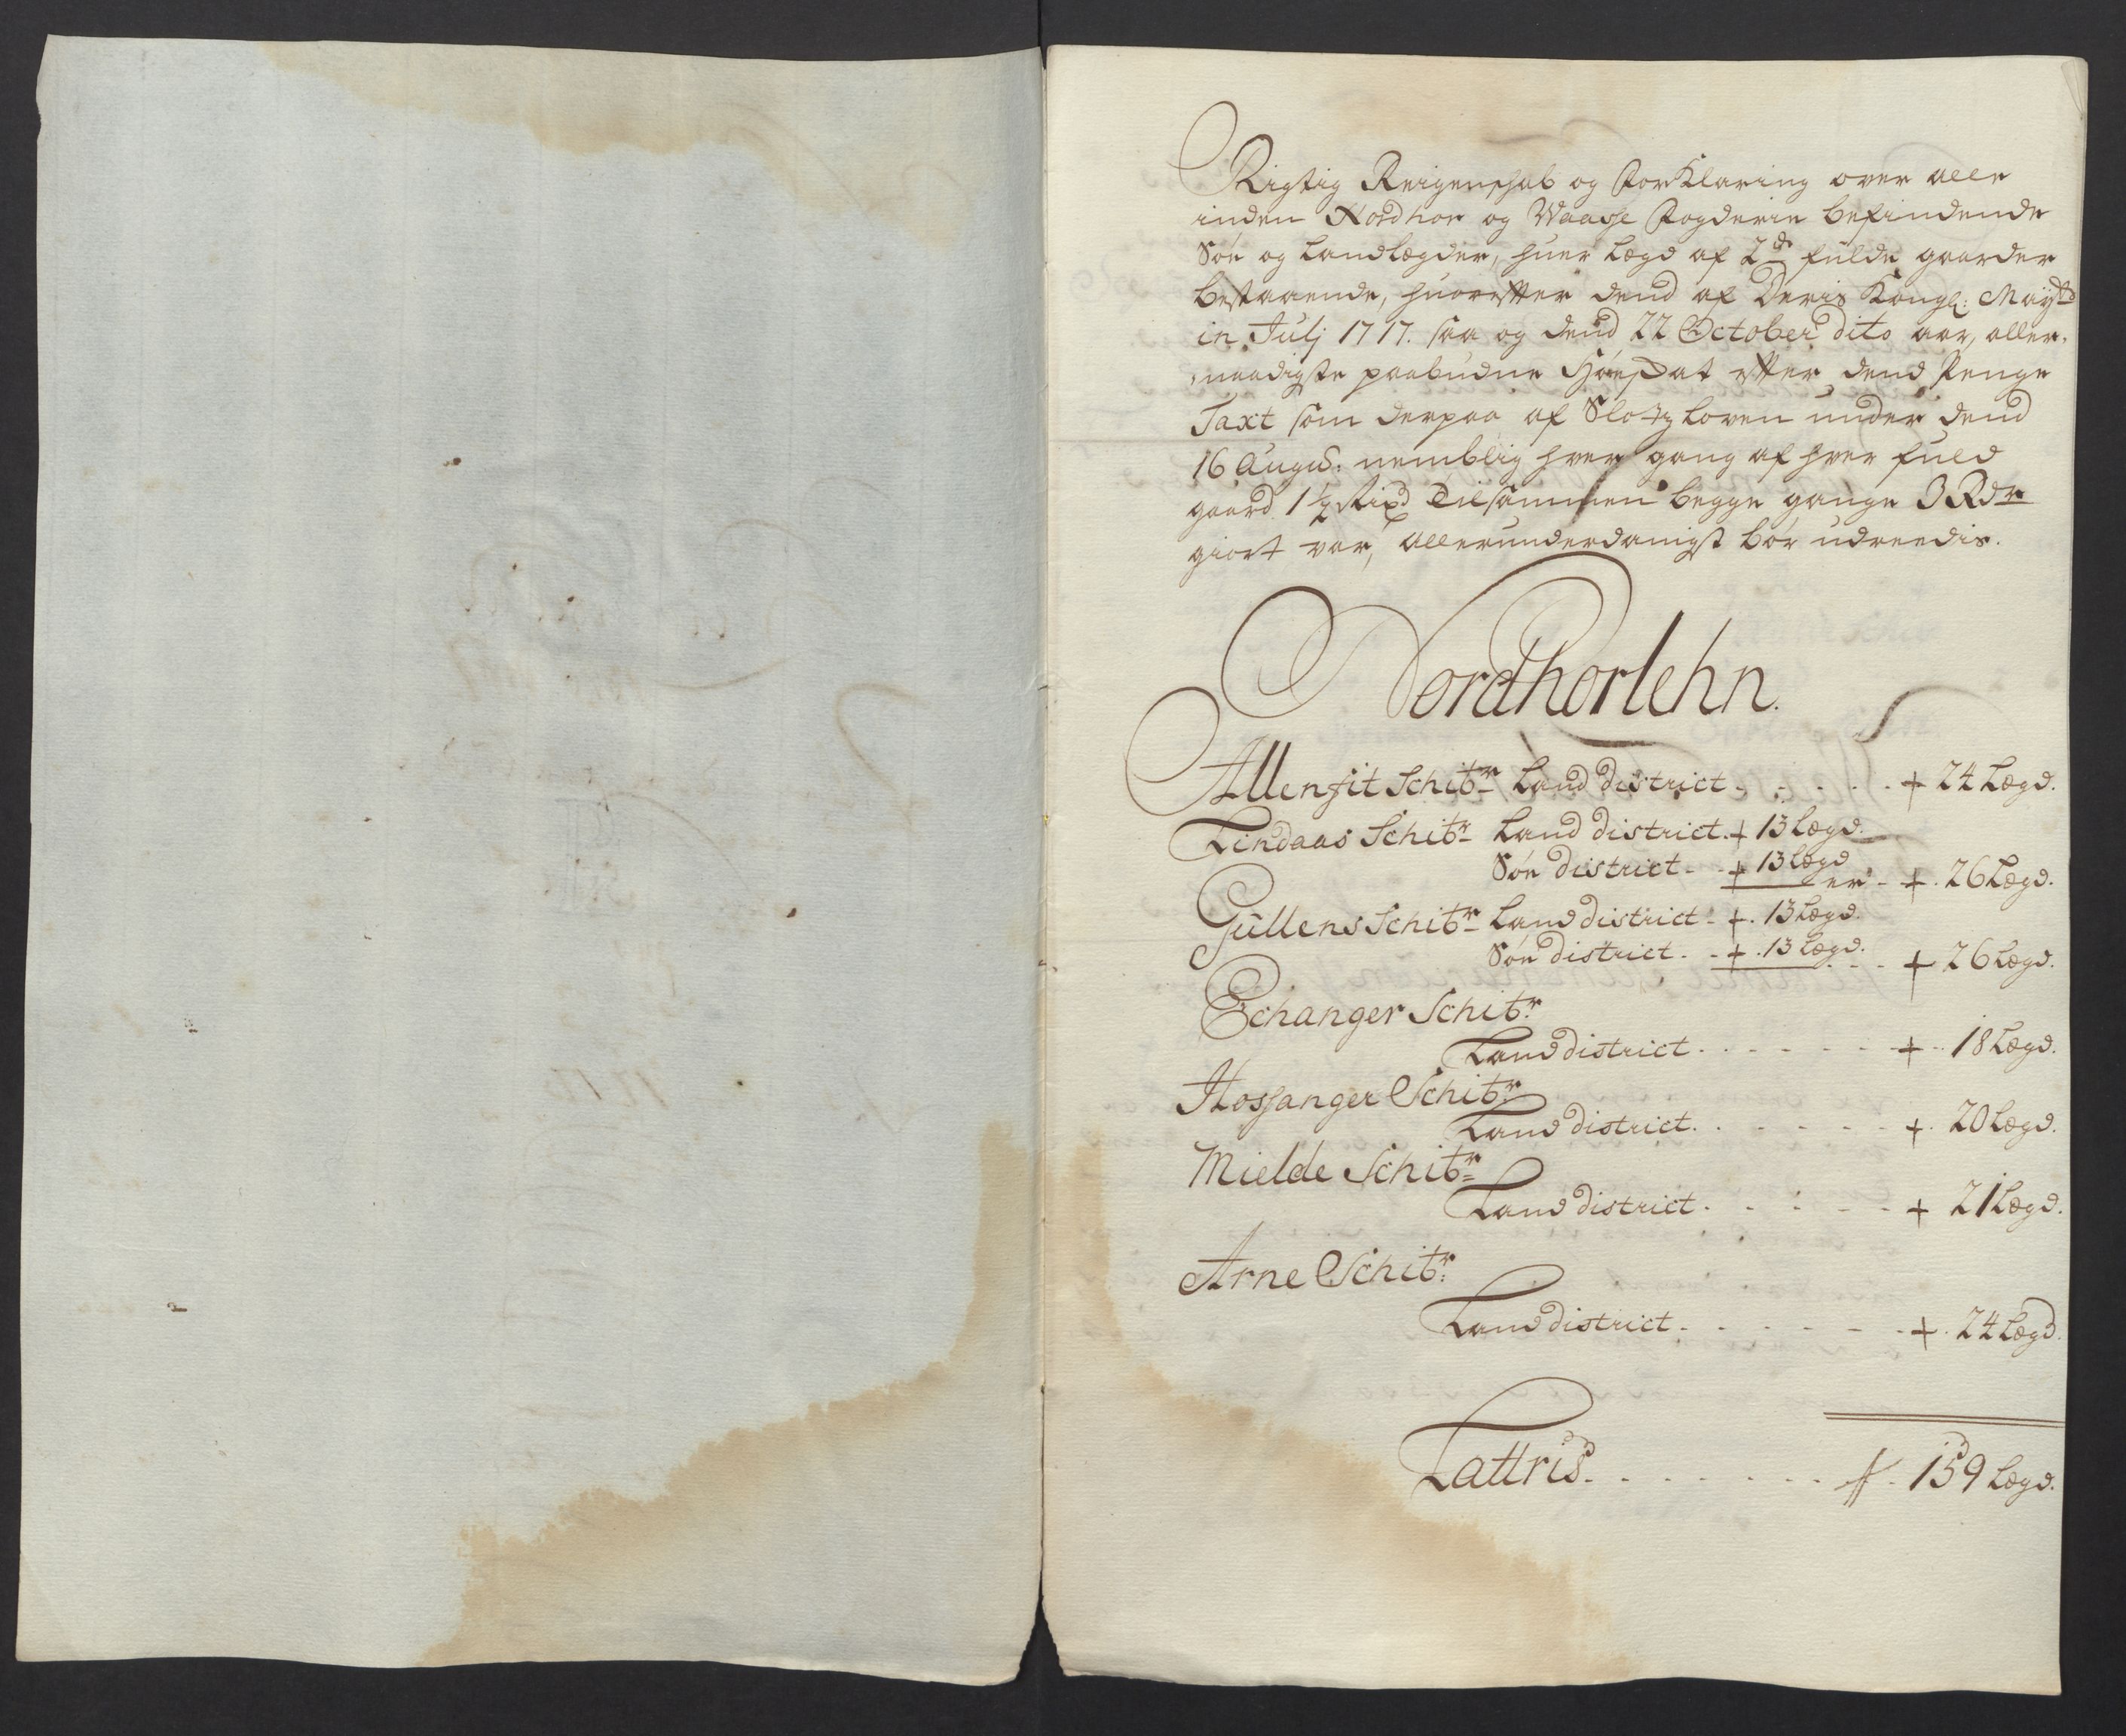 Rigtig Reigenschab og Forklaring over alle
inden Nordhor og Waasse Fogderie befindende
Søe og Landlægder, huer Lægd af 2de fulde gaarder
bestaaende, huorefter dend af Deris Kongl: Maytt
in Julj 1717. saa og dend 22 October dito aar, aller,
naadigste paabudne Skat efter dend Penge
Taxt som derpaa af Slotzloven under dend
16 Augus: nemblig hver gang af hver fuld
gaard 1½ Rixd Tilsammen begge gange 3 Rdr
giort var, allerunderdanigst bør udreedis.
Nordhorlehn.
Allenfit Schibr Land district - - - - - 24 Lægd.
Lindaas Schibr Land district. 13 Lægd.
Søe district - - 13 Lægd er - 26 Lægd.
Gullens Schibr Land district - 13 Lægd.
Søe district. - - 13 Lægd. - - 26 Lægd.
Echanger Schibr
Land district. - - - - - - 18 Lægd.
Hossanger Schibr
Land district. - - - - - - 20 Lægd.
Mielde Schibr
Land district. - - - - - 21 Lægd.
Arne Schibr:
Land district. - - - - - - 24 Lægd.
Lattris. - - - - - - - 159 Lægd.